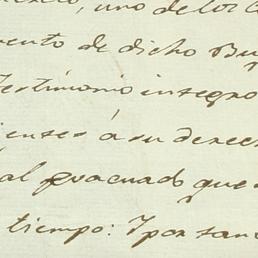 uno de los
ento de dicho Bu
Testimonio integro
ientes á su derech
al evacuado que
tiempo: Y por tan